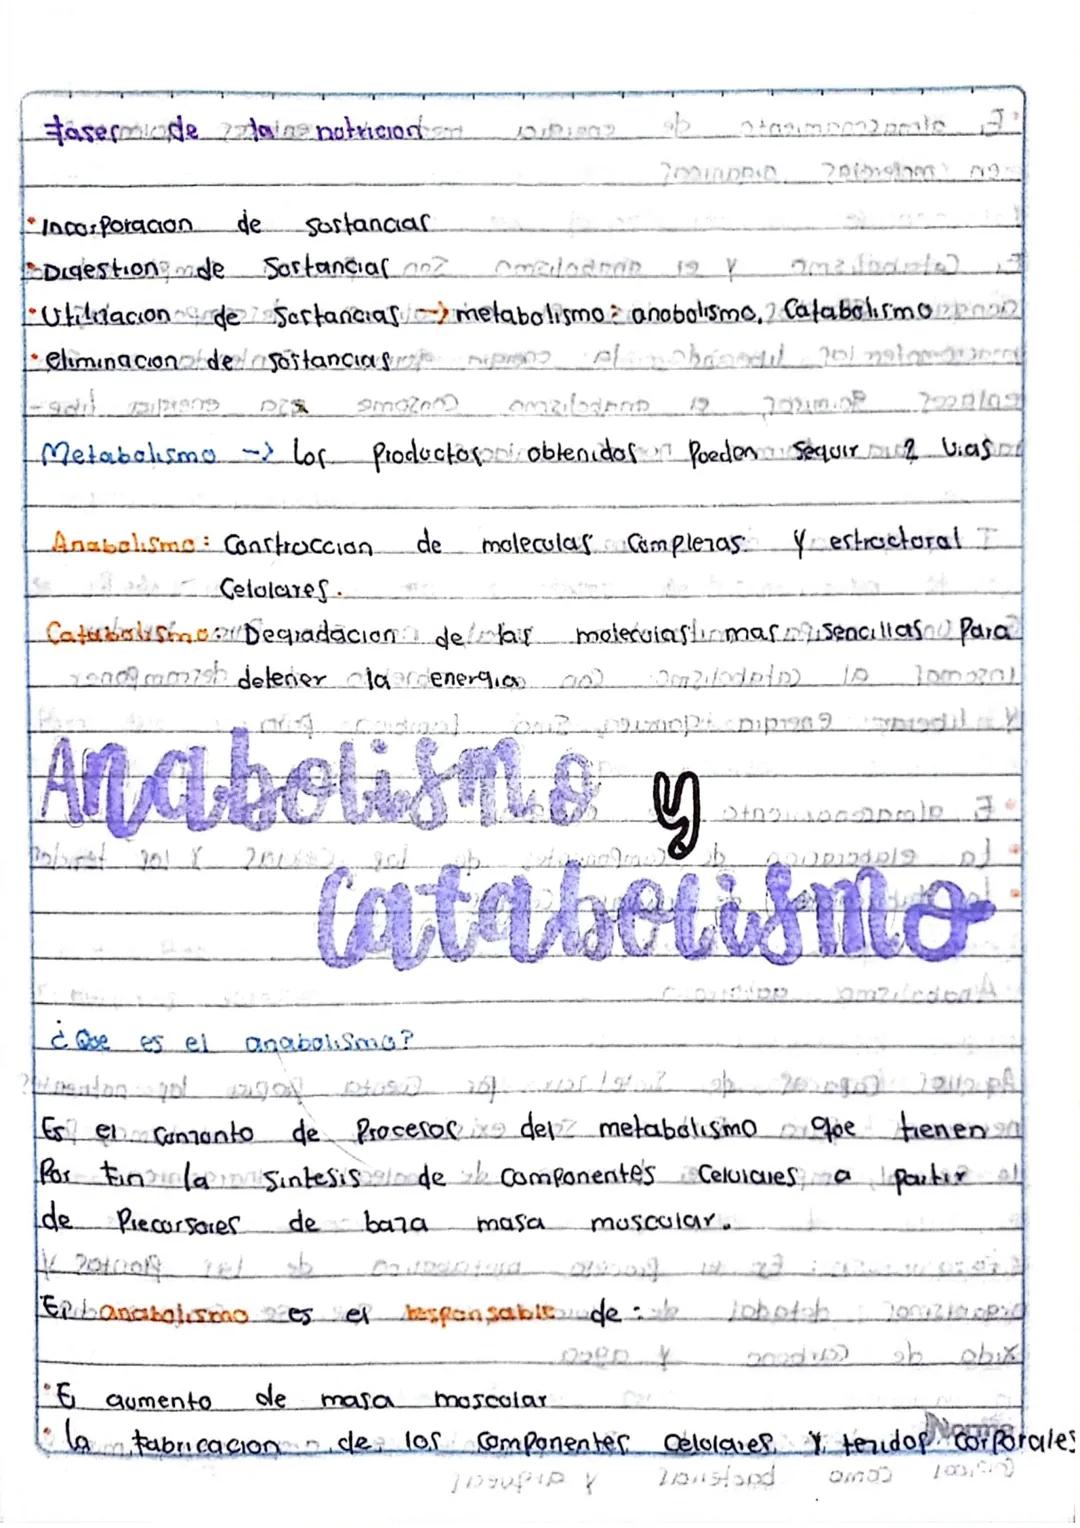 fases de la nutricion
• Incorporacion de sustancias
• Digestion de Sustancias
• Utilizacion de Sustancias → metabolismo: anobolismo, Catabolismo
• eliminacion de sustancias
Metabolismo → los Productos obtenidos Pueden Seguir 2 Vias
Anabolismo: Construccion de moleculas Complejas y estructural
Celulares.
Catabolismo: Degradacion de las moleculas mas sencillas Para
detener la energia
Anabolismo y
Catabolismo
¿Que es el anabolismo?
Es el conjunto de Procesos del metabolismo que tienen
Por fin la sintesis de componentes Celulares a partir
de Precursores de baja masa muscular.
El anabolismo es el responsable de:
• El aumento de masa muscular
• la fabricacion de los componentes celulares y tejidos corporales
Norma